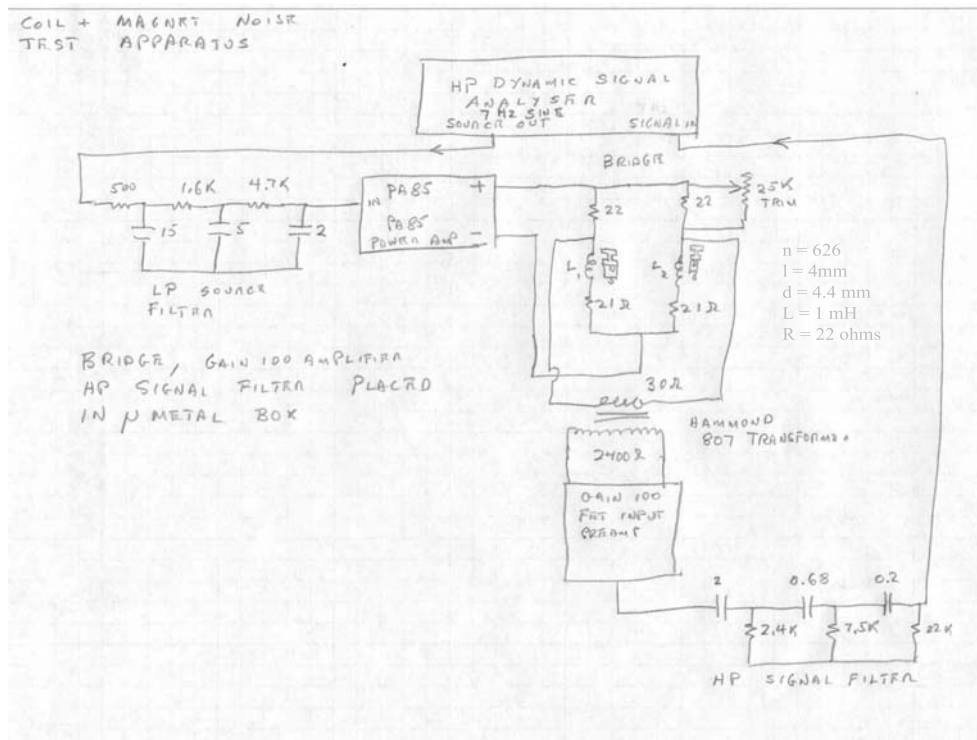 COIL + MAGNET NOISE
TEST APPARATUS
HP DYNAMIC SIGNAL
ANALYSER
7 HZ SINE
SOURCE OUT SIGNAL IN
BRIDGE
500 1.6K 4.7K
15 5 2
LP SOURCE
FILTER
PA85 +
IN
PA85
POWER AMP -
22 22 25K
TRIM
L1 L2
21Ω 21Ω
n = 626
l = 4mm
d = 4.4 mm
L = 1 mH
R = 22 ohms
BRIDGE, GAIN 100 AMPLIFIER
HP SIGNAL FILTER PLACED
IN μ METAL BOX
30Ω
HAMMOND
807 TRANSFORMER
2400Ω
GAIN 100
FET INPUT
PREAMP
2 0.68 0.2
2.4K 7.5K 22K
HP SIGNAL FILTER